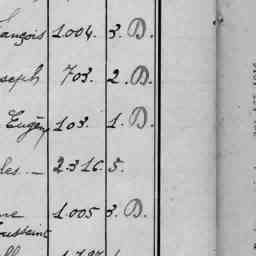 ançois 1.004. 3. D.
seph 703. 2. D.
Eugèn 103. 1. D.
les. — 2.316. 5.
1.005 3. D.
oussaint